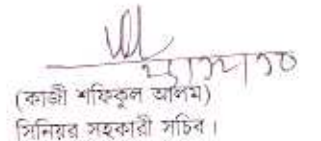 (কাজী শফিকুল আলম)
সিনিয়র সহকারী সচিব।